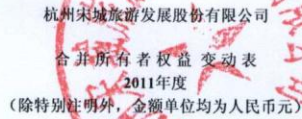 杭州宋城旅游发展股份有限公司
合并所有者权益变动表
2011年度
（除特别注明外，金额单位均为人民币元）